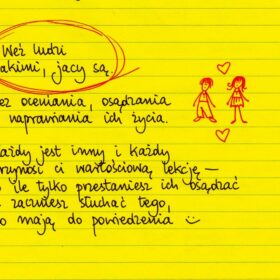 Weź ludzi
akimi, jacy są
ez oceniania, osądzania
naprawiania ich życia.
ażdy jest inny i każdy
rzynosi ci wartościową lekcję —
ile tylko przestaniesz ich osądzać
zaczniesz słuchać tego,
o mają do powiedzenia